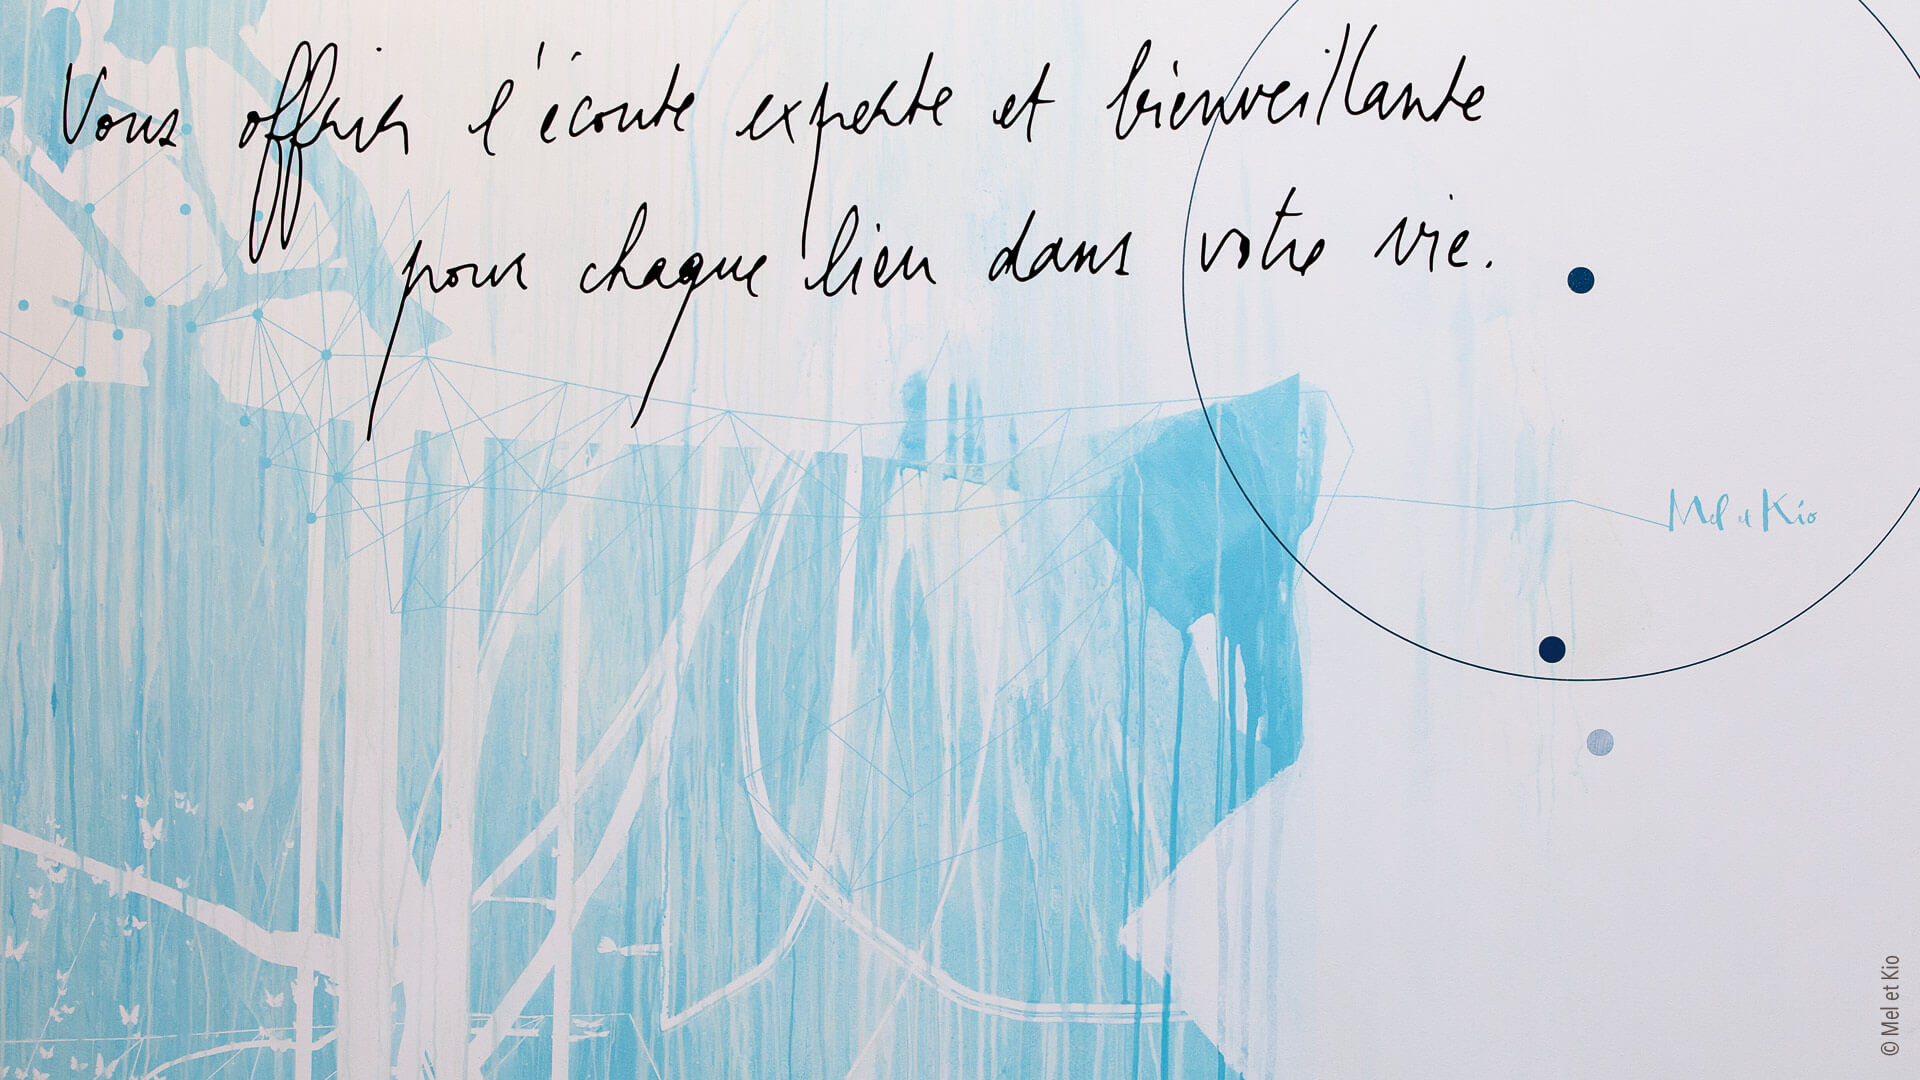 Vous offrir l'écoute experte et bienveillante
pour chaque lien dans votre vie.
Mel et Kio
© Mel et Kio